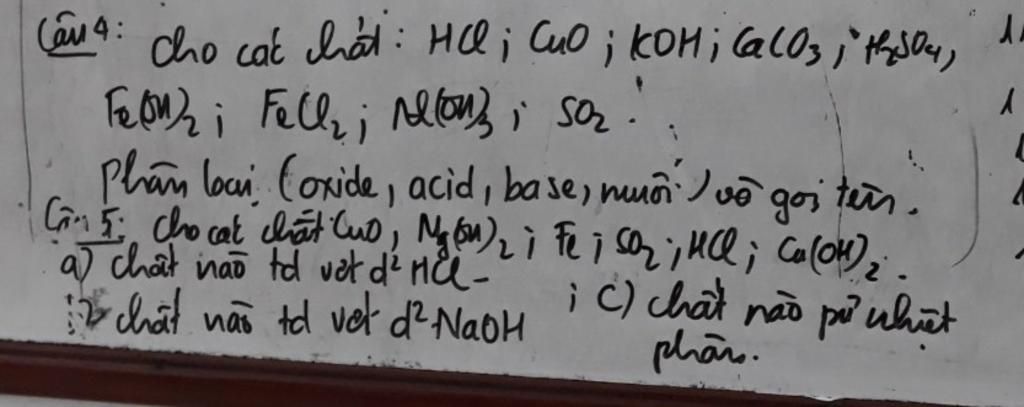 Câu 4: Cho các chất: HCl; CuO; KOH; CaCO3; H2SO4,
Fe(OH)2; FeCl2; Al(OH)3; SO2.
Phân loại (oxide, acid, base, muối) và gọi tên.
Câu 5: Cho các chất CuO, Mg(OH)2; Fe; SO2; HCl; Ca(OH)2.
a) chất nào td với d² HCl
chất nào td với d² NaOH ; c) chất nào pứ nhiệt
phân.